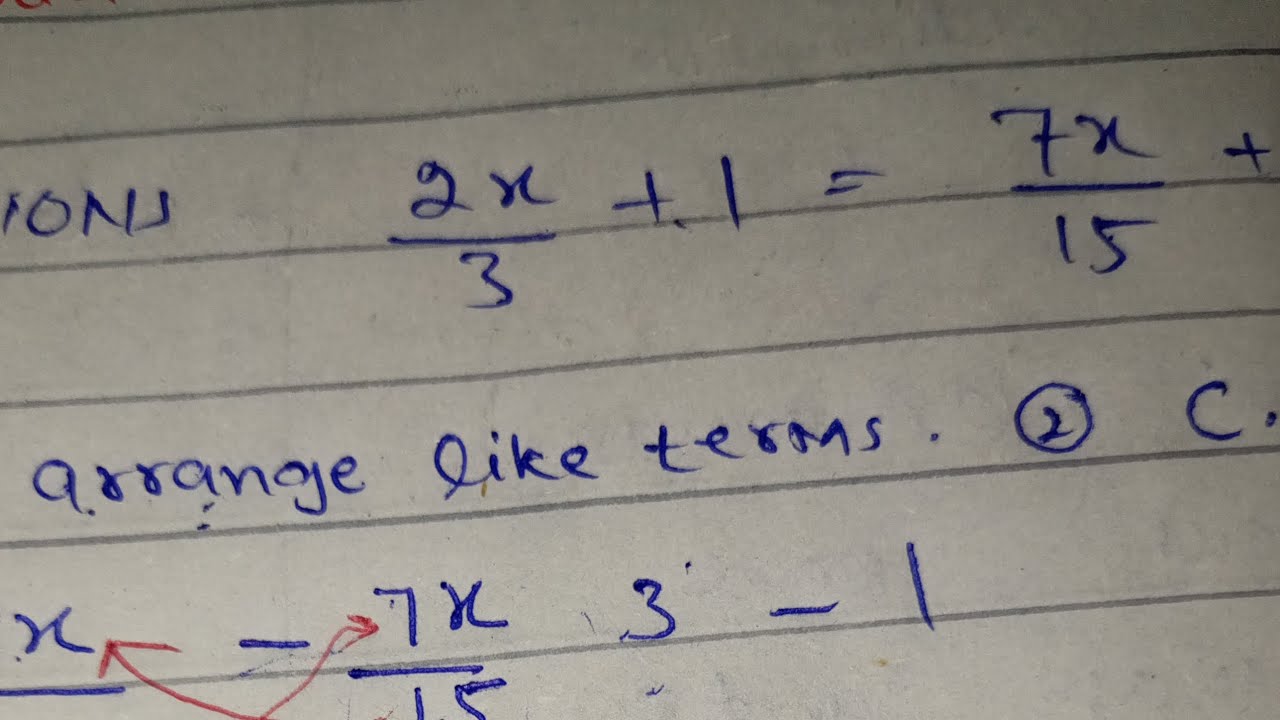 IONS 2x/3 + 1 = 7x/15 +
arrange like terms. ② C.
x - 7x/15 3 - 1